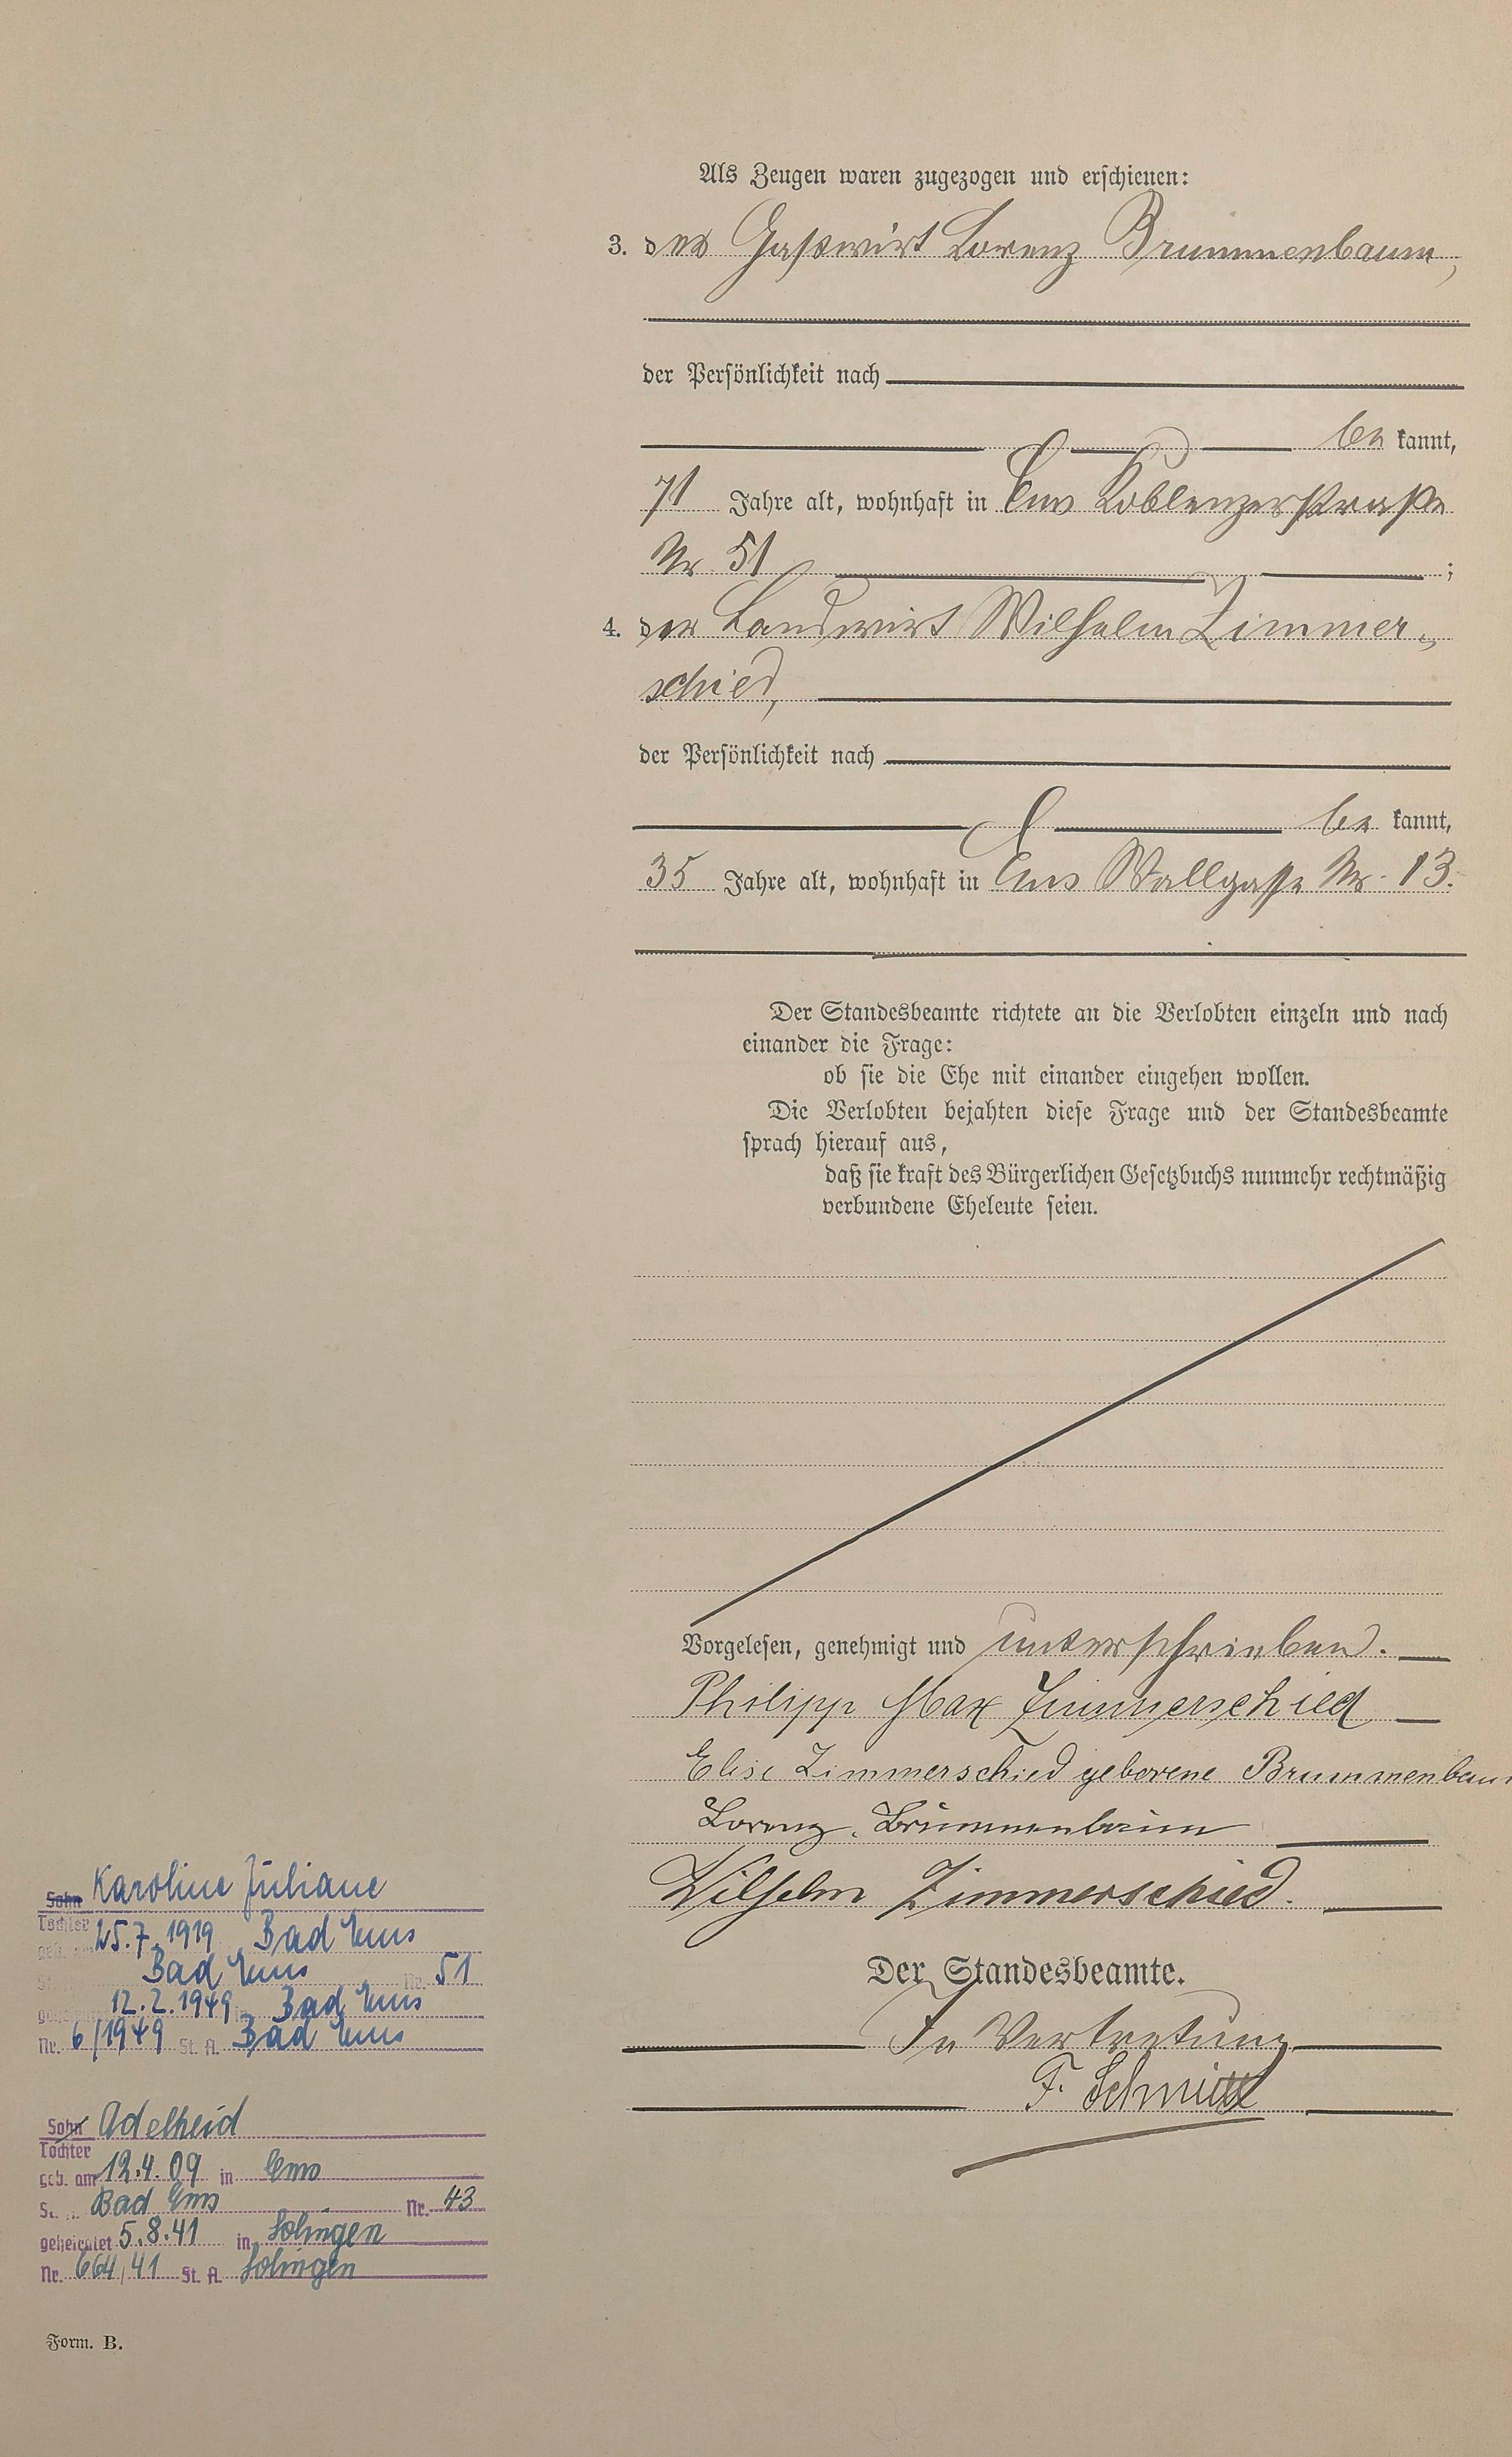 Als Zeugen waren zugezogen und erschienen:
3. der Gastwirt Lorenz Brummenbaum,
der Persönlichkeit nach
be kannt,
71 Jahre alt, wohnhaft in Ems Koblenzerstraße
Nr 51 ;
4. der Landwirt Wilhelm Zimmer-
schied,
der Persönlichkeit nach
be kannt,
35 Jahre alt, wohnhaft in Ems Wallgasse Nr. 13.
Der Standesbeamte richtete an die Verlobten einzeln und nach
einander die Frage:
ob sie die Ehe mit einander eingehen wollen.
Die Verlobten bejahten diese Frage und der Standesbeamte
sprach hierauf aus,
daß sie kraft des Bürgerlichen Gesetzbuchs nunmehr rechtmäßig
verbundene Eheleute seien.
Vorgelesen, genehmigt und unterschrieben.
Philipp Max Zimmerschied
Elise Zimmerschied geborene Brummenbaum
Lorenz Brummenbaum
Wilhelm Zimmerschied.
Der Standesbeamte.
In Vertretung
F. Schmitt
Sohn Karoline Juliane
Tochter
geb. am 25.7.1919 Bad Ems
Bad Ems Nr. 51
12.2.1949 Bad Ems
Nr. 6/1949 St. A. Bad Ems
Sohn Adelheid
Tochter
geb. am 12.4.09 in Ems
Bad Ems Nr. 43
geheiratet 5.8.41 in Solingen
Nr. 664/41 St. A. Solingen
Form. B.